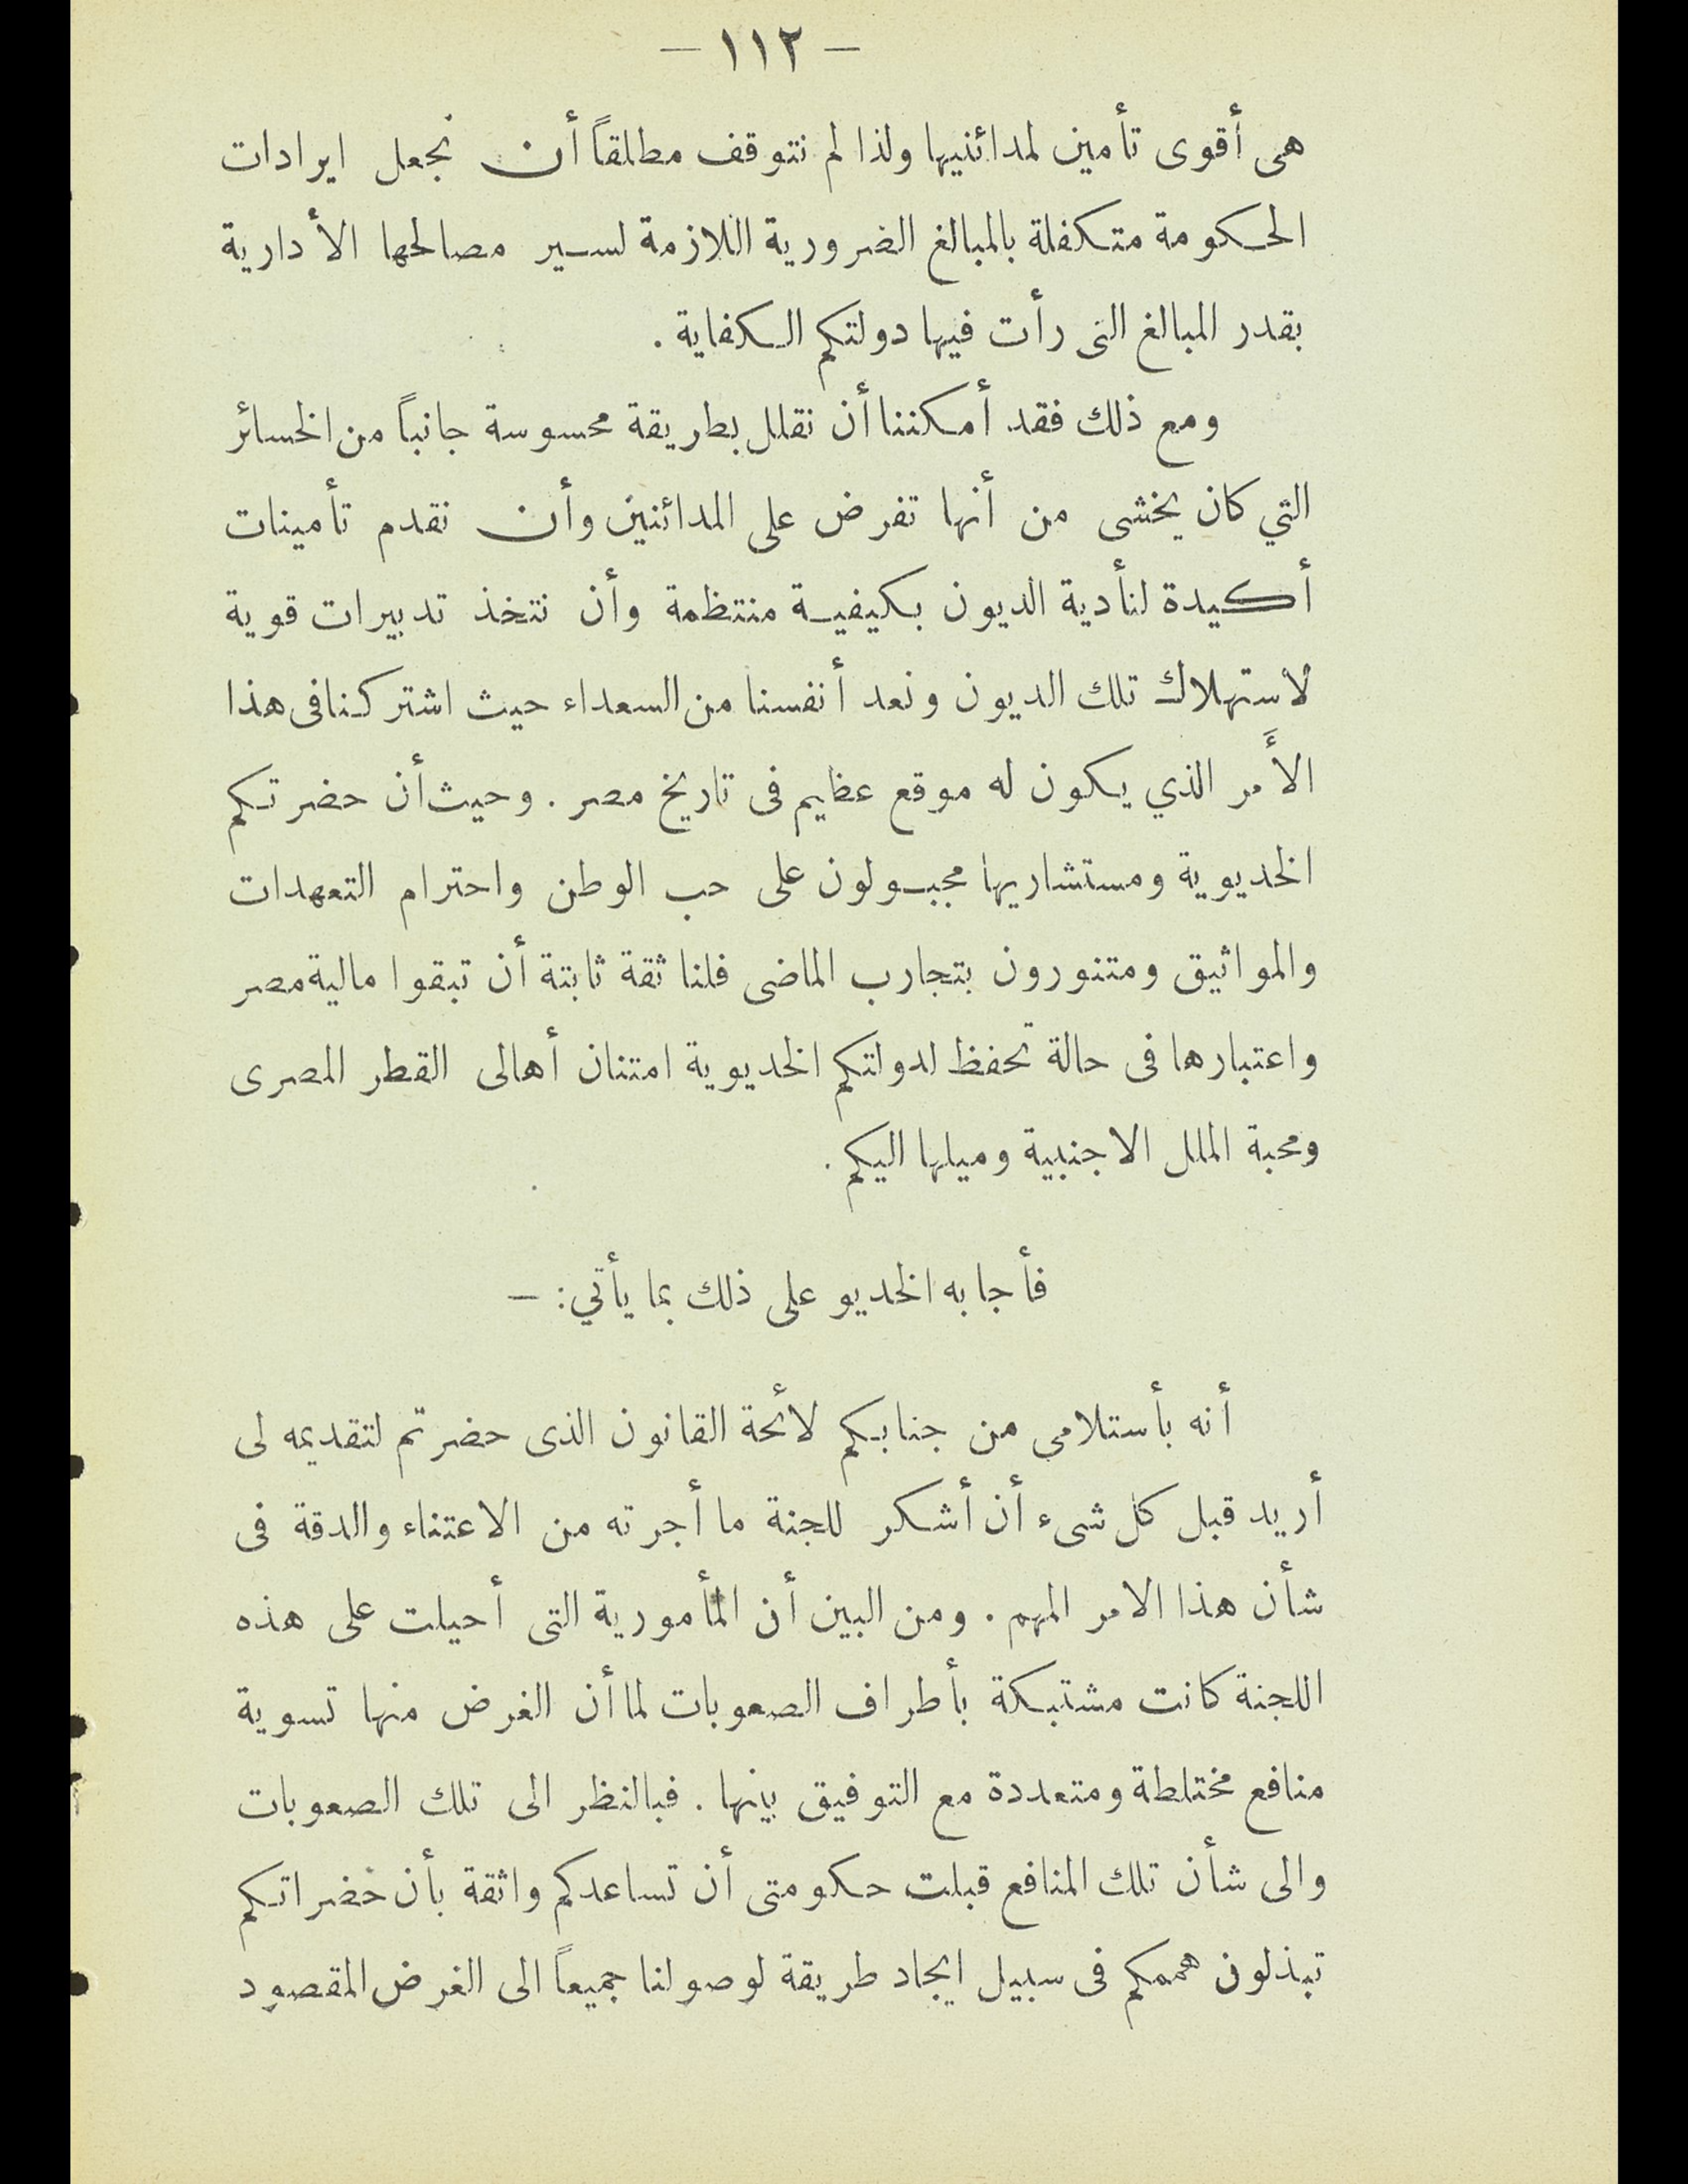 — ١١٢ —
هى أقوى تأمين لمدائنيها ولذا لم نتوقف مطلقاً أن نجعل ايرادات
الحكومة متكفلة بالمبالغ الضرورية اللازمة لسير مصالحها الأدارية
بقدر المبالغ التى رأت فيها دولتكم الكفاية .
ومع ذلك فقد أمكننا أن نقلل بطريقة محسوسة جانباً من الخسائر
التي كان يخشى من أنها تفرض على المدائنين وأن نقدم تأمينات
أكيدة لتأدية الديون بكيفية منتظمة وأن نتخذ تدبيرات قوية
لاستهلاك تلك الديون ونعد أنفسنا من السعداء حيث اشتركنا فى هذا
الأَمر الذي يكون له موقع عظيم فى تاريخ مصر . وحيث أن حضرتكم
الخديوية ومستشاريها مجبولون على حب الوطن واحترام التعهدات
والمواثيق ومتنورون بتجارب الماضى فلنا ثقة ثابتة أن تبقوا مالية مصر
واعتبارها فى حالة تحفظ لدولتكم الخديوية امتنان أهالى القطر المصرى
ومحبة الملل الاجنبية وميلها اليكم .
فأجابه الخديو على ذلك بما يأتي : —
أنه بأستلامى من جنابكم لائحة القانون الذى حضرتم لتقديمه لى
أريد قبل كل شىء أن أشكر للجنة ما أجرته من الاعتناء والدقة فى
شأن هذا الامر المهم . ومن البين أن المأمورية التى أحيلت على هذه
اللجنة كانت مشتبكة بأطراف الصعوبات لما أن الغرض منها تسوية
منافع مختلطة ومتعددة مع التوفيق بينها . فبالنظر الى تلك الصعوبات
والى شأن تلك المنافع قبلت حكومتى أن تساعدكم واثقة بأن حضراتكم
تبذلون هممكم فى سبيل ايجاد طريقة لوصولنا جميعاً الى الغرض المقصود